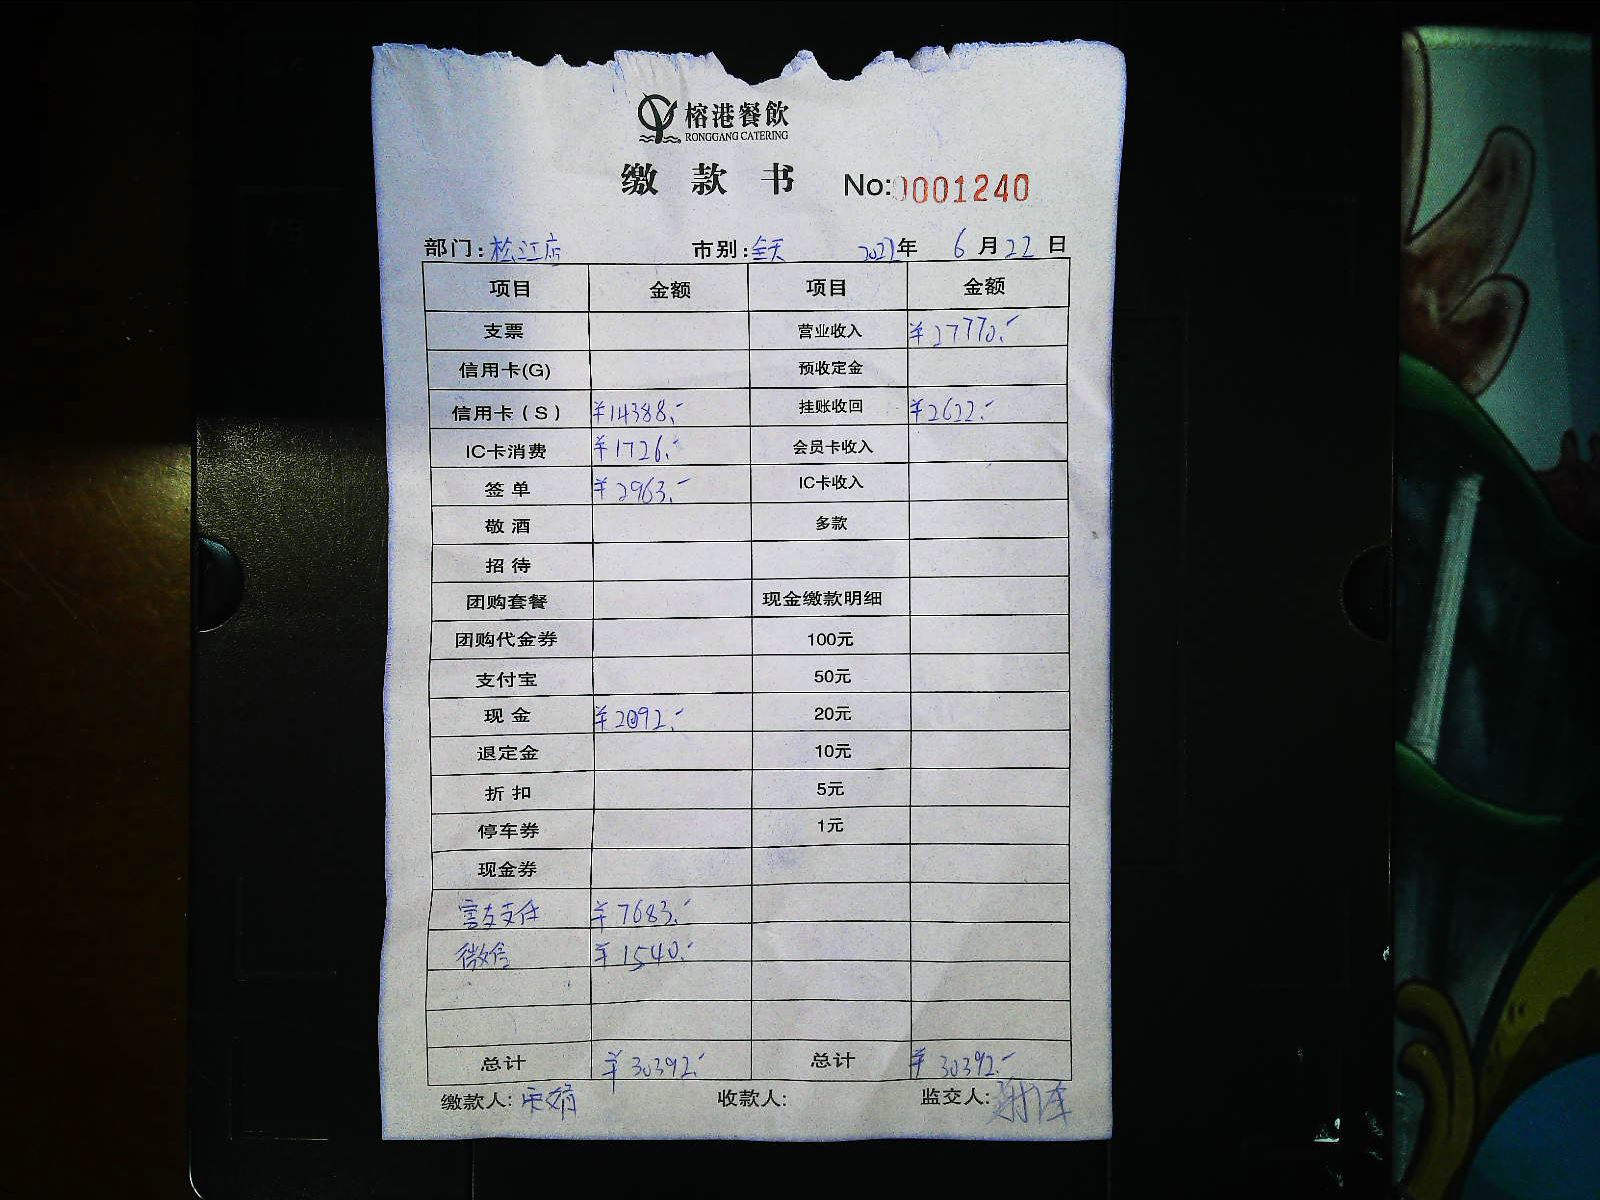 榕港餐飲
RONGGANG CATERING
缴款书 No:0001240
部门:松江店 市别:全天 2021年 6月22日
项目 金额 项目 金额
支票 营业收入 ¥27770.-
信用卡(G) 预收定金
信用卡(S) ¥14388.- 挂账收回 ¥2622.-
IC卡消费 ¥1726.- 会员卡收入
签单 ¥2963.- IC卡收入
敬酒 多款
招待
团购套餐 现金缴款明细
团购代金券 100元
支付宝 50元
现金 ¥2092.- 20元
退定金 10元
折扣 5元
停车券 1元
现金券
支付 ¥7683.-
微信 ¥1540.-
总计 ¥30392.- 总计 ¥30392.-
缴款人: 收款人: 监交人: